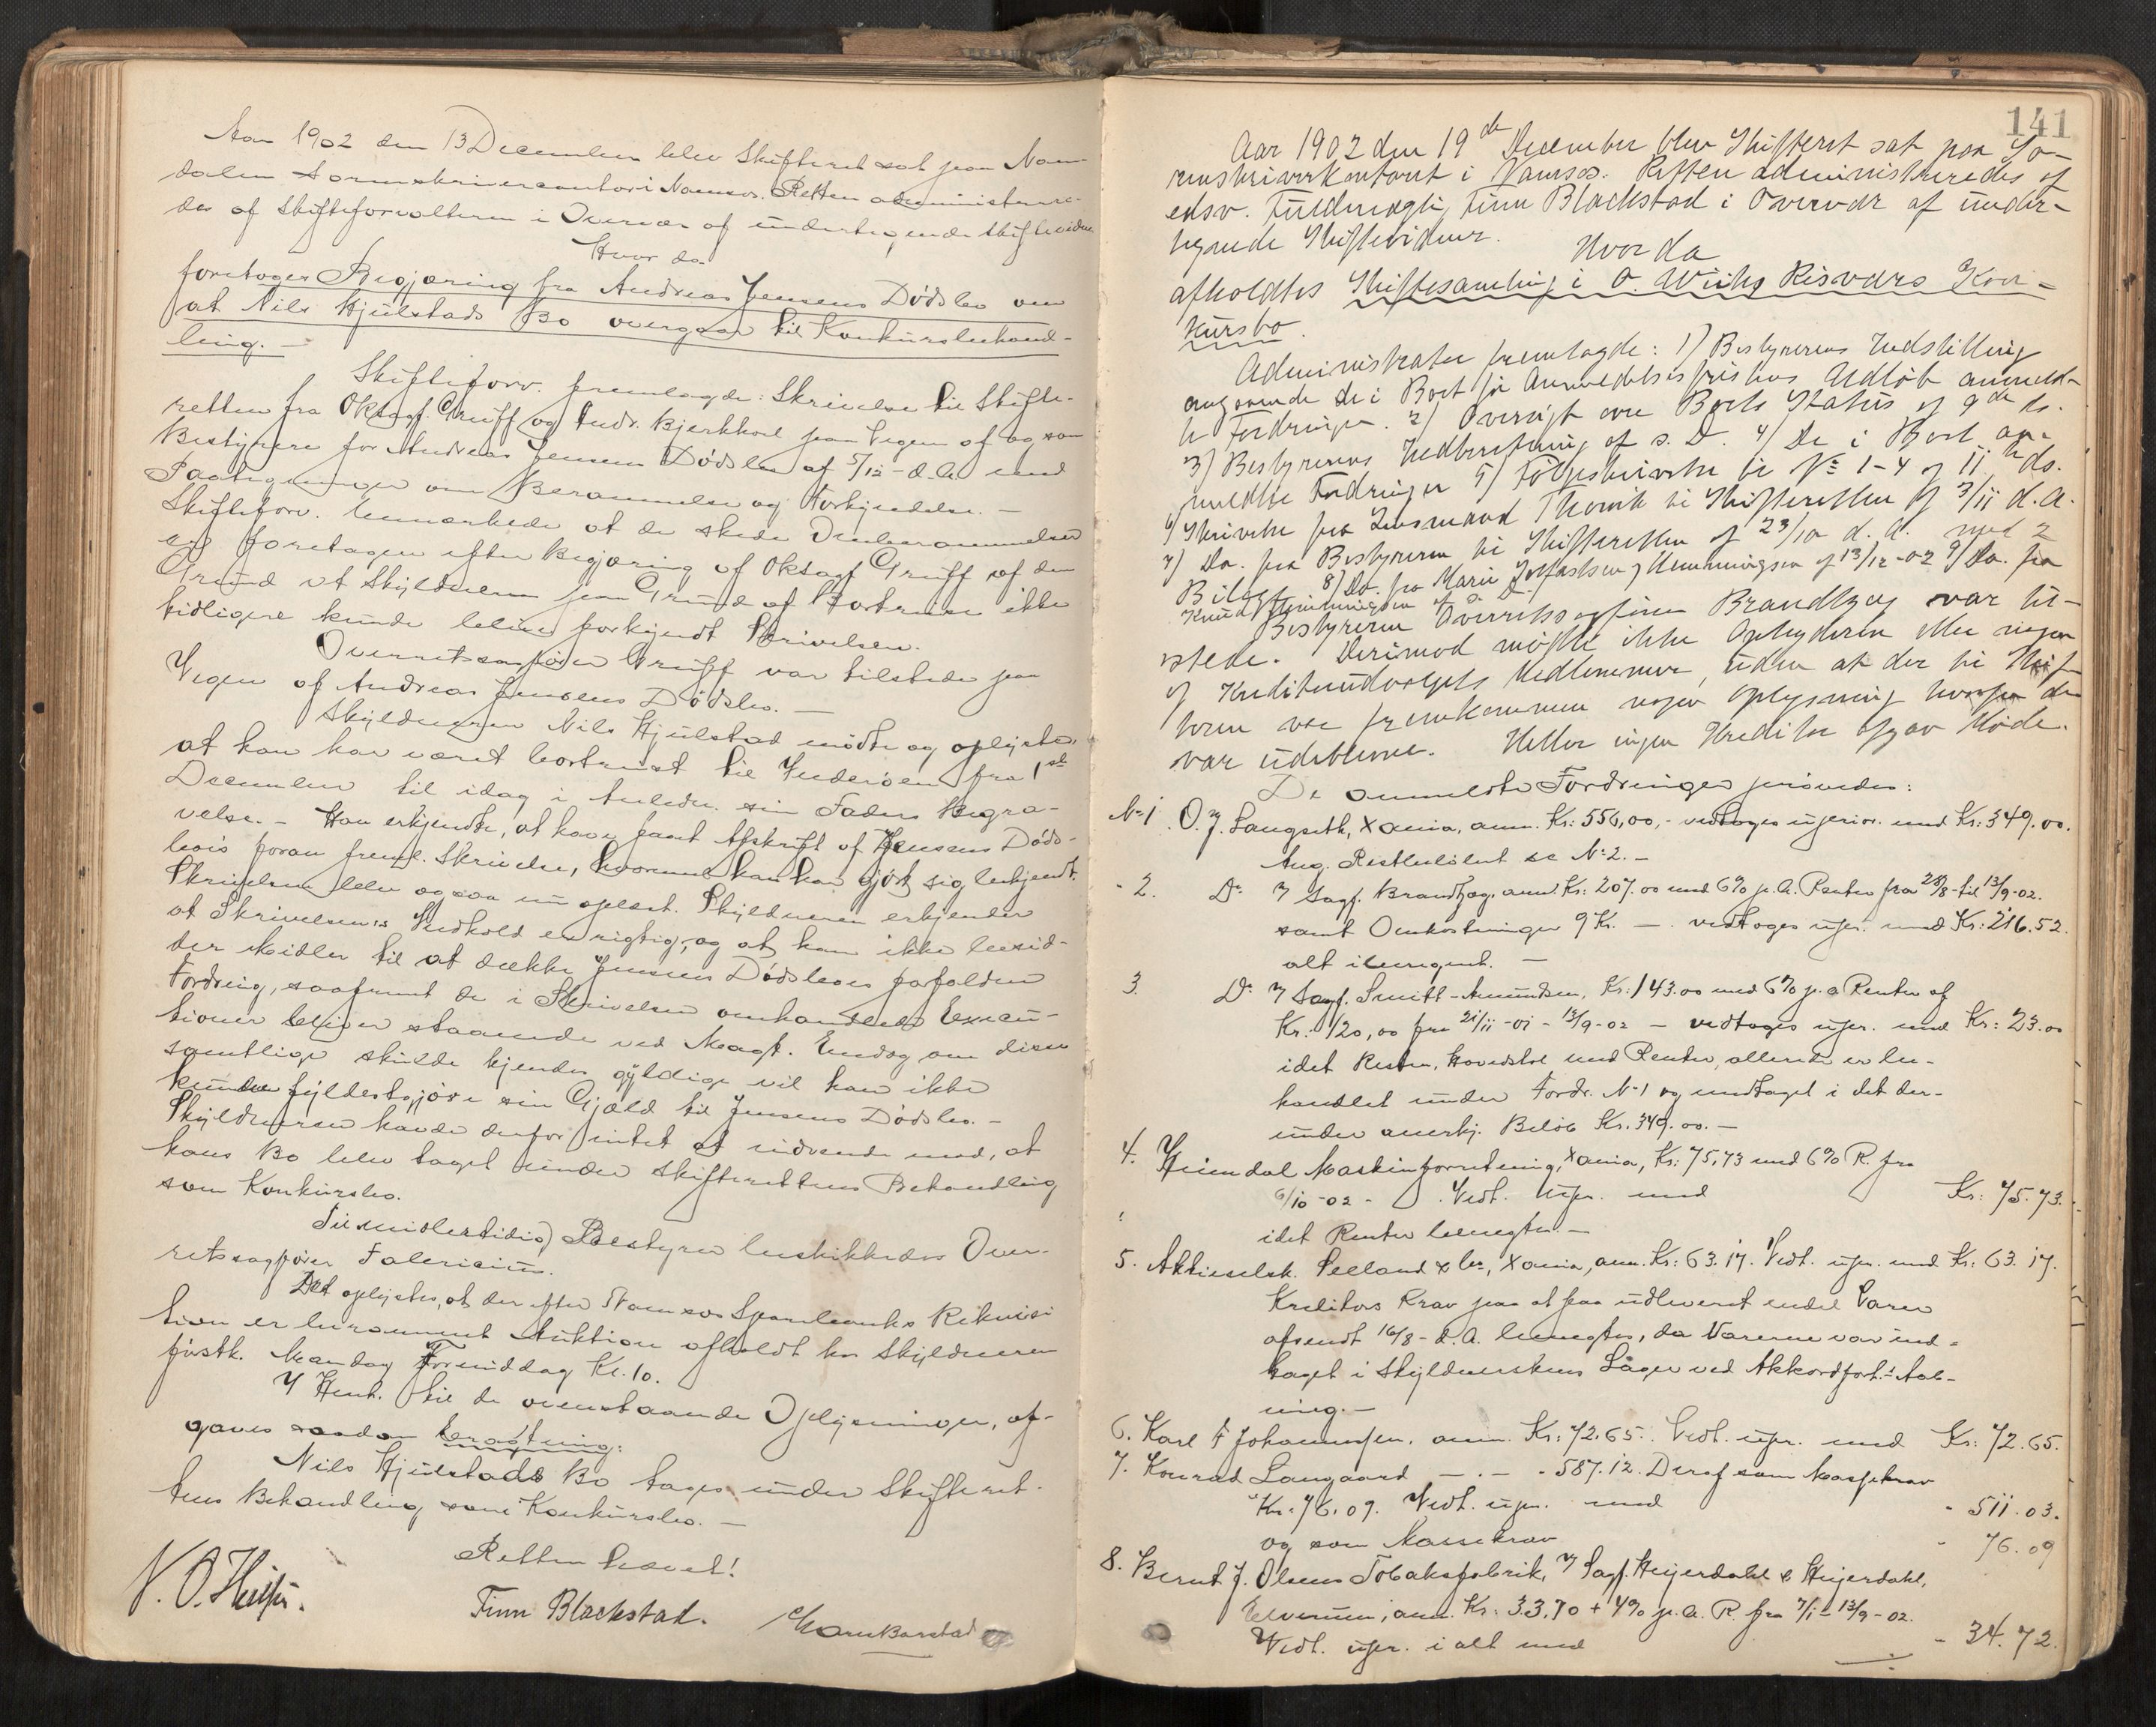 Aar 1902 den 13 December blev Skifteret sat paa Nam-
dalen Sorenskrivercontor i Namsos. Retten administrere-
des af Skifteforvalteren i Overvær af undertegnede Skiftevidner
Hvor da
foretoges Begjæring fra Andreas Jensens Dødsbo om
at Nils Hjulstads Bo overgaar til Konkursbehand-
ling. -
Skifteforv. fremlagde: Skrivelse til Skifte-
retten fra Oksagf. Gruff og Andr. Bjerkhoel paa Vegne af og som
Bestyrere for Andreas Jensens Dødsbo af 5/12 - d.A. med
Paategninger om Berammelse og Forkyndelse. -
Skifteforv. bemærkede at de skede Omberammelser
er foretagen efter Begjæring af Oksagf Gruff af den
Grund at Skyldneren paa Grund af Bortreise ikke
tidligere kunde blive forkyndt Skrivelsen.
Overretssagfører Gruff var tilstede paa
Vegne af Andreas Jensens Dødsbo. -
Skyldneren Nils Hjulstad mødte og oplyste,
at han har været bortreist til Inderøen fra 1ste
December til idag i Anledn. sin Faders Begra-
velse. - Han erkjendte, at have faaet Afskrift af Jensens Døds-
bois foran freml. Skrivelse, hvormed han har gjort sig bekjendt.
Skrivelsen blev ogsaa nu oplæst. Skyldneren erkjender
at Skrivelsens Indhold er rigtig, og at han ikke besid-
der Midler til at dække Jensens Dødsboes forfaldne
Fordring, saafremt de i Skrivelsen omhandlede Execu-
tioner bliver staaende ved Magt. Endog om disse
samtlige skulde kjendes gyldige vil han ikke
kunde fyldestgjøre sin Gjæld til Jensens Dødsbo. -
Skyldneren havde derfor intet at indvende mod, at
hans Bo blev taget under Skifterettens Behandling
som Konkursbo.
Til midlertidig Bestyrer beskikkedes Over-
retssagfører Falerium.
Det oplystes, at der efter Namsos Sparebanks Rekvisi
tion er berammet Auktion afholdt hos Skyldneren
førstk. Mandag Formiddag Kl. 10.
I Henh. til de ovenstaaende Oplysninger, af-
gaves saadan Eragtning:
Nils Hjulstads Bo tages under Skifteret-
tens Behandling som Konkursbo. -
Retten hævet!
Finn Blackstad.
141
Aar 1902 den 19de December blev Skifteret sat paa So-
renskriverkontoret i Namsos. Retten administreredes af
edsv. Fuldmægtig Finn Blackstad i Overvær af under-
tegnede Skiftevidner.
Hvorda
afholdtes Skiftesamling i O. Wiihs Risværs Kon-
kursbo.
Administrator fremlagde: 1) Bestyrerens Indstilling
angaaende de i Boet før Anmeldelsesfristens Udløb anmeld-
te Fordringer. 2) Oversigt over Boets Status af 9de ds.
3) Bestyrerens Indberetning af s. D. 4) De i Boet an-
meldte Fordringer 5) Følgeskrivelse til No 1-4 af 11te ds.
6) Skrivelse fra Lensmand Thorvik til Skifteretten af 3/11 d.A.
7) Do. fra Bestyreren til Skifteretten af 23/10 d. A. med 2
Bilag 8) Do. fra Marie Henningsen af 13/12-02 9) Do. fra
Knud Henningsen af s. D.
Bestyreren Overretssagfører Brandtzæg var til-
stede. Derimod mødte ikke Opbyderen eller nogen
af Kreditorudvalgets Medlemmer, uden at der til Skif-
teren var fremkommen nogen Oplysning hvorfor de
var udeblevne. Heller ingen Kreditor afgav Møde.
De anmeldte Fordringer prøvedes:
No 1. O. J. Langseth, Xania, anm. Kr: 556,00, - vedtoges uprior. med Kr: 349.00.
Ang. Restbeløbet se No 2. -
- 2. Do v Sagf. Brandtzæg, anm. Kr: 207.00 med 6% p.A. Renter fra 28/8 - til 13/9-02.
samt Omkostninger 9 Kr. - vedtoges upr. med Kr: 216.52.
alt iberegnet. -
3. Do v Sagf. Smitt-Amundsen, Kr: 143.00 med 6% p.a Renter af
Kr: 120,00 fra 21/11-01 - 13/9-02 - vedtoges upr. med Kr: 23.00
idet Resten, Hovedstol med Renter, allerede er be-
handlet under Fordr. No 1 og medtaget i det der-
under anerkj. Beløb Kr. 349.00. -
4. Heimdal Maskinforretning, Xania, Kr: 75,73 med 6% R. fra
6/10-02 - Vedt. Upr. med Kr: 75.73.
idet Renter benegtes. -
5. Aktieselsk. Selland & Co, Xania, anm. Kr: 63.17. Vedt. upr. med Kr: 63.17.
Kreditors Krav paa at faa udleveret endel Varer
afsendt 16/8 - d.A. benegtes, da Varerne var ind-
taget i Skyldnerskens Lager ved Akkordforh.s Aab-
ning. -
6. Karl F Johannesen. anm. Kr: 72.65. Vedt. upr. med Kr: 72.65.
7. Konrad Langaard - . - - 587.12. Deraf som Massekrav
Kr: 76.09. Vedt. upr. med - 511.03.
og som Massekrav - 76.09
8. Bernt J. Olsens Tobaksfabrik, v Sagf. Heyerdahl & Heyerdahl,
Elverum, anm. Kr: 33,70 + 4% p.A. R. fra 7/1 - 13/9-02.
Vedt. upr. i alt med - 34.72.